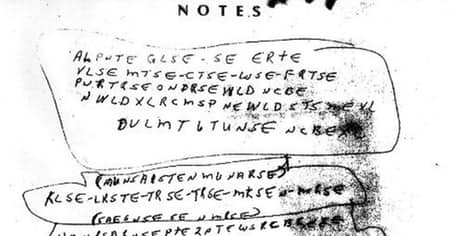 NOTES
ALPNTE GLSE - SE ERTE
VLSE MTSE-CTSE-WSE-FRTSE
PURTRSEONDRSEWLD NCBE
NWLDXLRCMSP NEWLDSTSMEXL
DULMT6TUNSE NCBEX
(MUNSAISTENMUNARSE)
KLSE-LRSTE-TRSE-TRSE-MKSEN-MRSE
(SAEGNSE SE N MRSE)